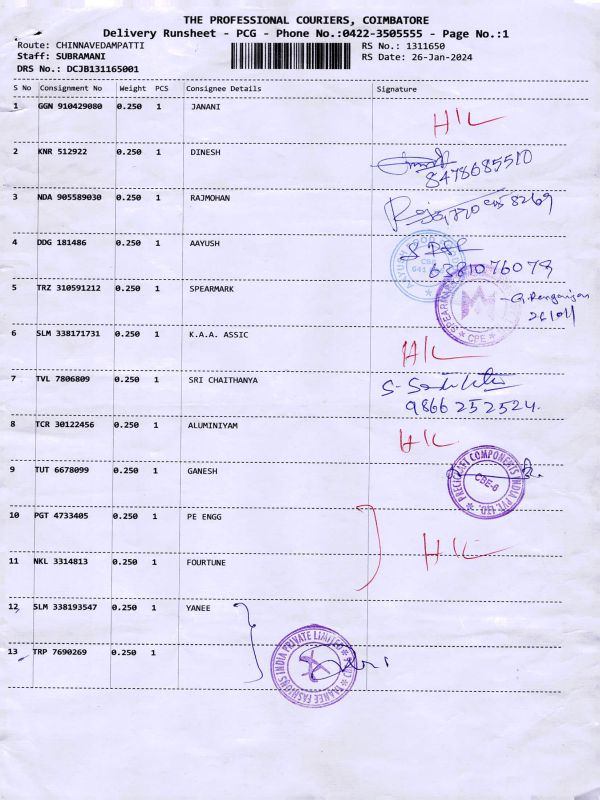 THE PROFESSIONAL COURIERS, COIMBATORE
Delivery Runsheet - PCG - Phone No.:0422-3505555 - Page No.:1
Route: CHINNAVEDAMPATTI RS No.: 1311650
Staff: SUBRAMANI RS Date: 26-Jan-2024
DRS No.: DCJB131165001
S No Consignment No Weight PCS Consignee Details Signature
1 GGN 910429080 0.250 1 JANANI H/L
2 KNR 512922 0.250 1 DINESH
8478685510
3 NDA 905589030 0.250 1 RAJMOHAN
4 DDG 181486 0.250 1 AAYUSH
6381076079
5 TRZ 310591212 0.250 1 SPEARMARK
26/01
CPE
6 SLM 338171731 0.250 1 K.A.A. ASSIC H/L
7 TVL 7806809 0.250 1 SRI CHAITHANYA
9866252524.
8 TCR 30122456 0.250 1 ALUMINIYAM H/L
9 TUT 6678099 0.250 1 GANESH
PRECICRAFT COMPONENTS INDIA PVT. LTD.
CBE-6
10 PGT 4733405 0.250 1 PE ENGG
H/L
11 NKL 3314813 0.250 1 FOURTUNE
12 SLM 338193547 0.250 1 YANEE
13 TRP 7690269 0.250 1
FASHIONS INDIA PRIVATE LIMITED